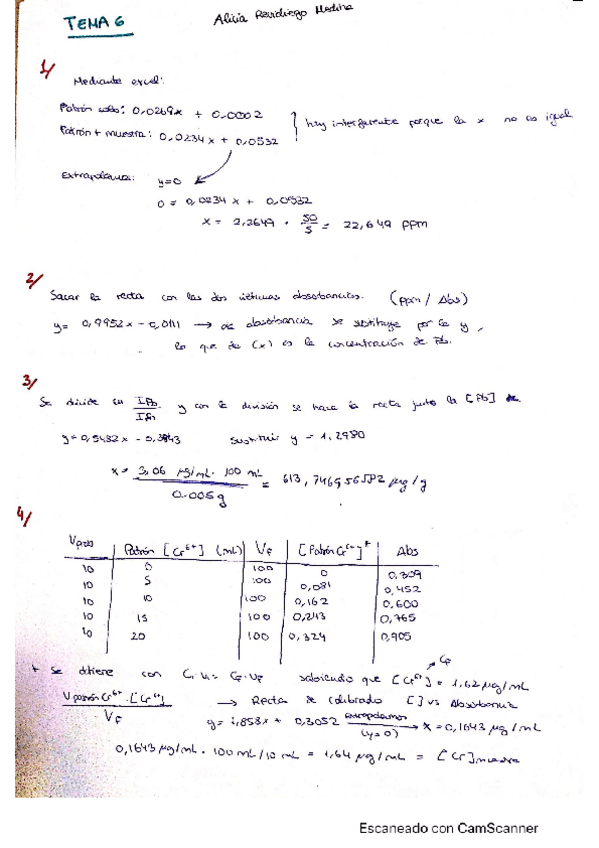 TEMA 6
Alicia Revidiego Medina
1/
Mediante excel:
Patrón solo: 0,0269x + 0,0002
Patrón + muestra: 0,0234x + 0,0532
hay interferente porque la x no es igual
Extrapolamos: y=0
0 = 0,0234x + 0,0532
x = 2,2649 · 50/5 = 22,649 ppm
2/
Sacar la recta con las dos últimas absorbancias. (ppm / Abs)
y = 0,9952x - 0,0111 → absorbancia se sustituye por la y,
lo que de (x) es la concentración de Pb.
3/
Se divide I Pb / I y con la división se hace la recta junto la [Pb]
y = 0,5432x - 0,3843 sustituir y = 1,2980
x = 3,06 µg/mL · 100 mL / 0.005g = 613,7469565 µg/g
4/
Patrón [Cr6+] (mL) VF [Patrón Cr6+]* Abs
10 0 100 0 0,309
10 5 100 0,081 0,452
10 10 100 0,162 0,600
10 15 100 0,243 0,765
10 20 100 0,324 0,905
* Se obtiene con Ci·Vi = CF·VF sabiendo que [Cr6+] = 1,62 µg/mL
V patrón Cr6+ · [Cr6+] / VF → Recta de calibrado [ ] vs Absorbancia
y = 1,858x + 0,3052 extrapolamos (y=0) → x = 0,1643 µg/mL
0,1643 µg/mL · 100 mL / 10 mL = 1,64 µg/mL = [Cr] muestra
Escaneado con CamScanner